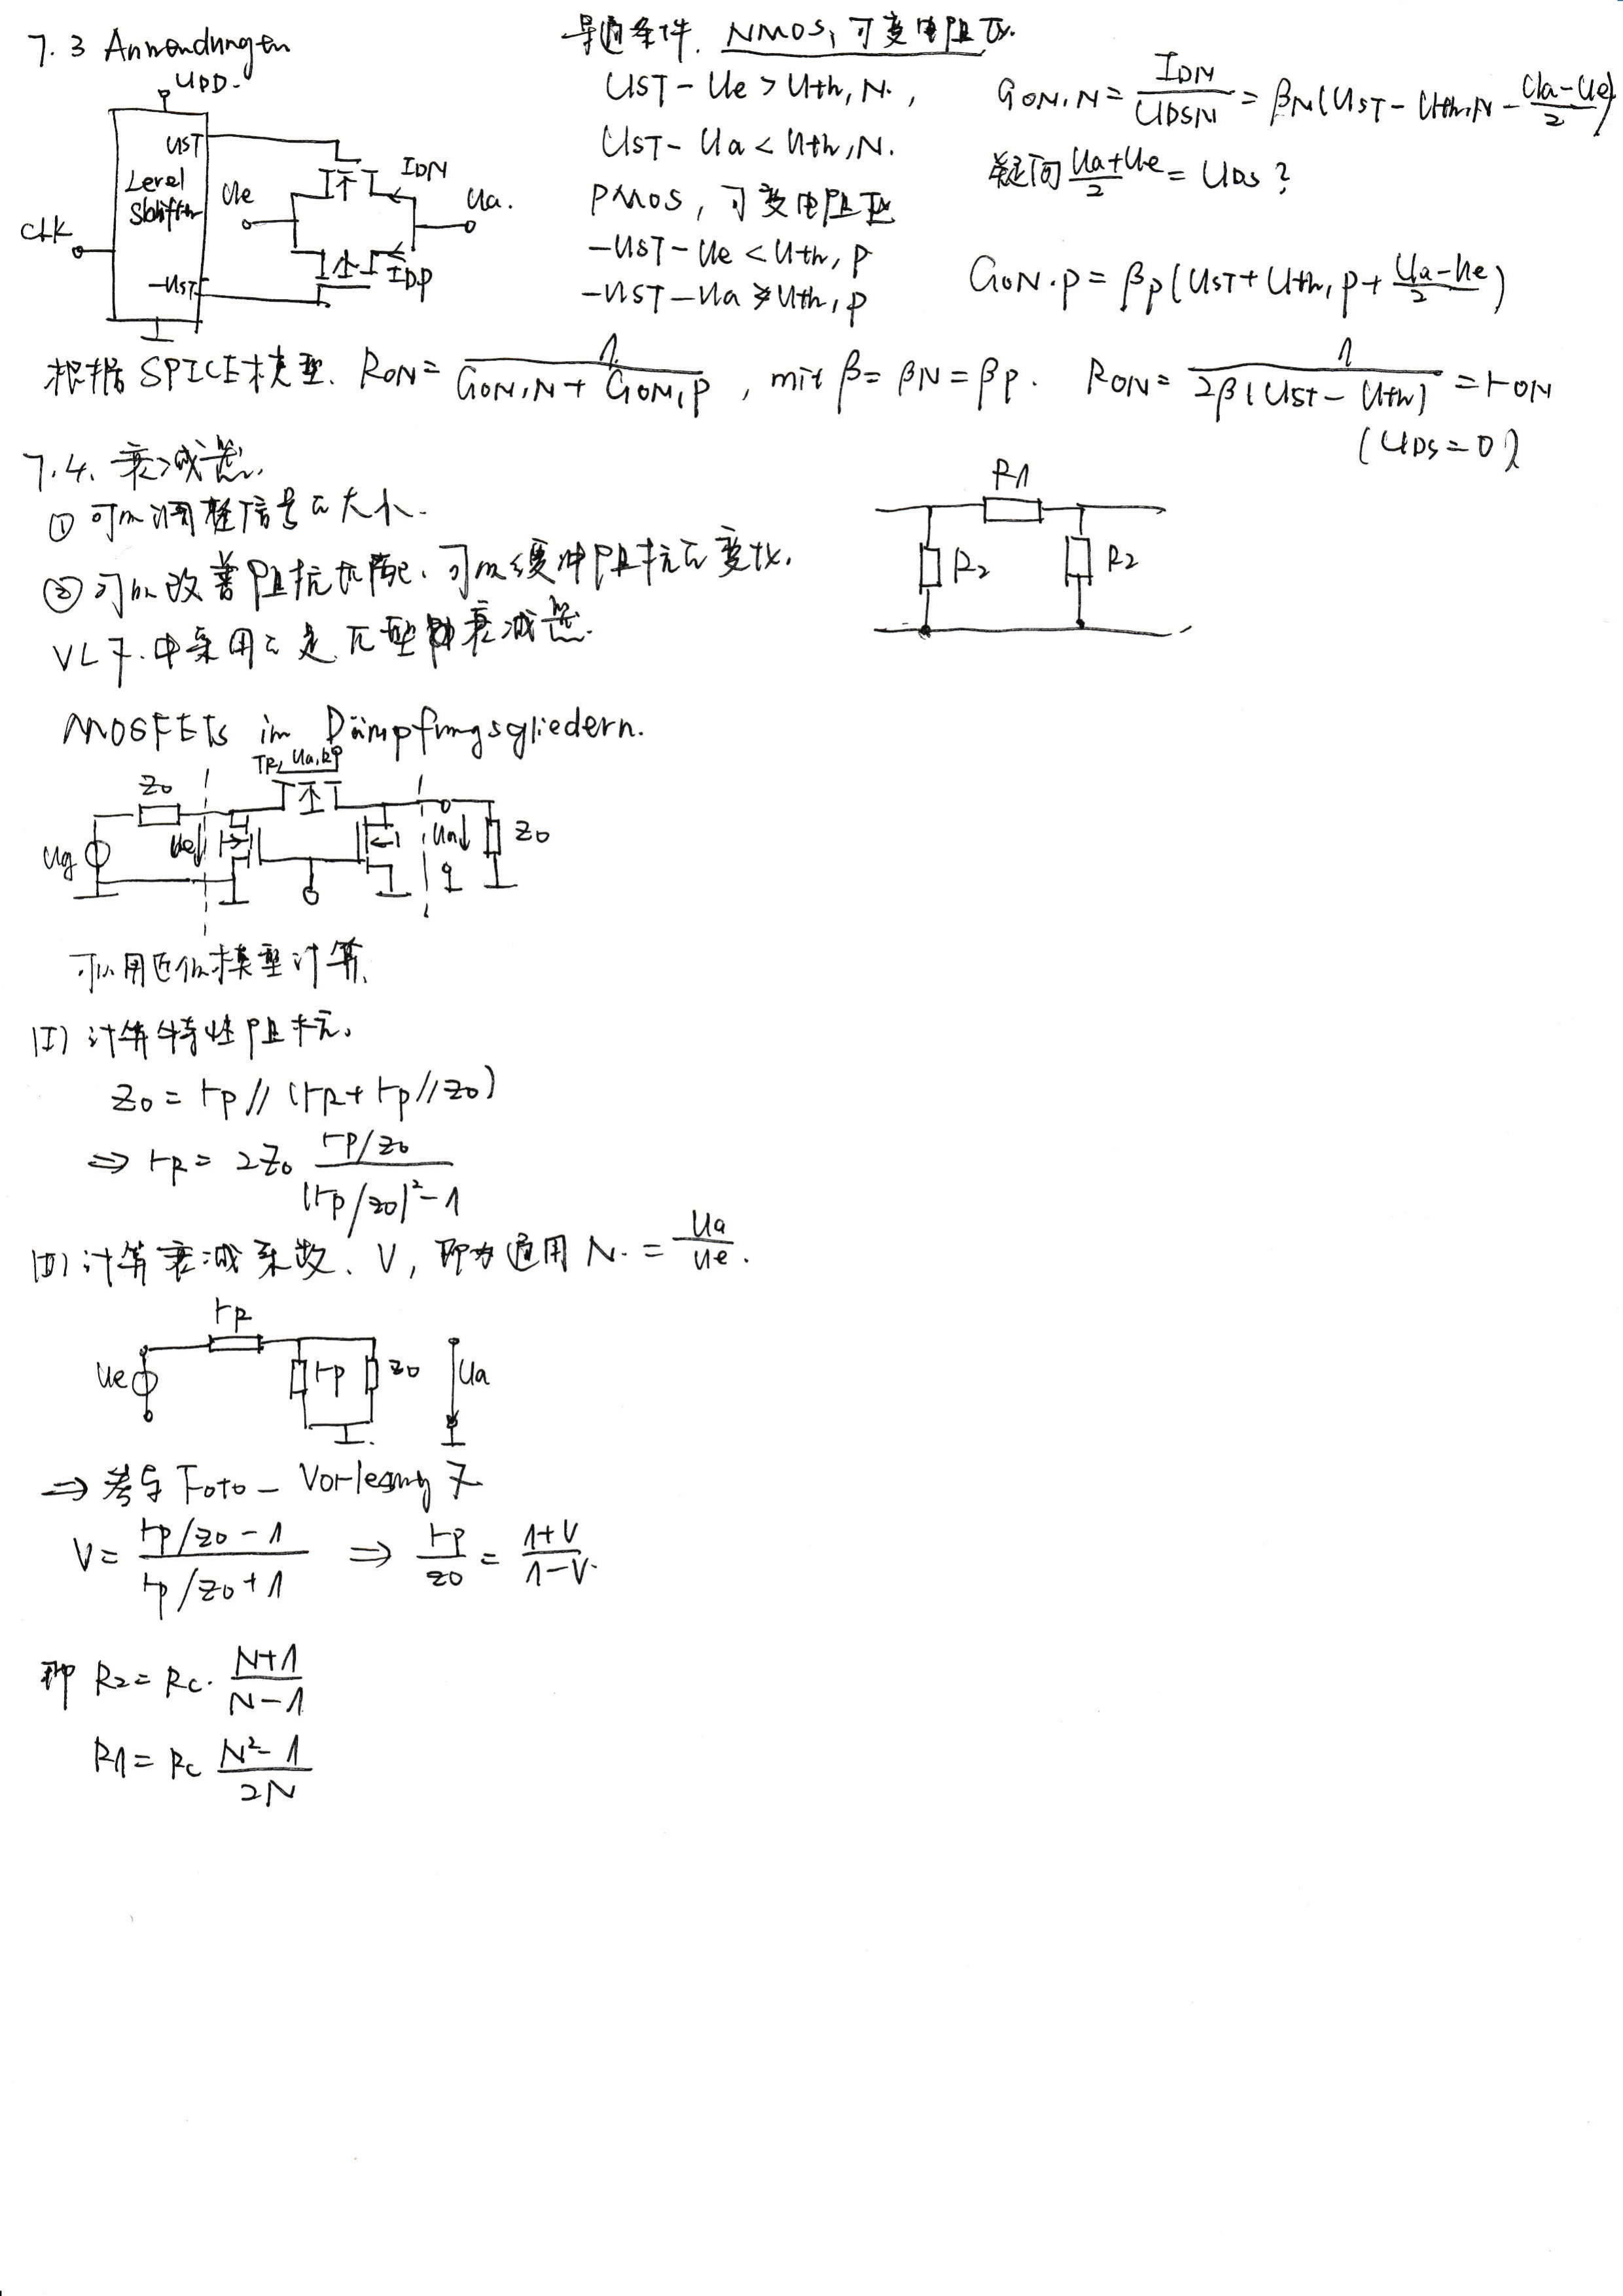 7.3 Anwendungen
UDD
UST
Level
Shifter
CLK
-UST
Ue
IDN
Ua.
IDP
导通条件. NMOS, 可变电阻区.
UST - Ue > Uth,N. ,
UST - Ua < Uth,N.
PMOS, 可变电阻区
-UST - Ue < Uth,P
-UST - Ua > Uth,P
GON,N = IDN/UDSN = βN(UST - Uth,N - (Ua-Ue)/2)
疑问 (Ua+Ue)/2 = UDS ?
GON.P = βP(UST + Uth,P + (Ua-Ue)/2)
根据 SPICE模型. RON = 1/(GON,N + GON,P) , mit β = βN = βP. RON = 1/(2β(UST - Uth)) = rON
(UDS = 0)
7.4. 衰减器.
① 可以调整信号的大小.
② 可以改善阻抗匹配, 可以缓冲阻抗的变化.
VL 7. 中采用的是 π型 衰减器.
R1
R2
R2
MOSFETs im Dämpfungsgliedern.
TR, Ua,R
Z0
Ug
Ue
Ua
Z0
可以用近似模型计算.
(I) 计算特性阻抗.
Z0 = rp // (rR + rp // Z0)
⇒ rR = 2Z0 (rp/Z0)/((rp/Z0)² - 1)
(II) 计算衰减系数. V, 即为通用 N. = Ua/Ue.
rR
Ue
rp
Z0
Ua
⇒ 参考 Foto - Vorlesung 7
V = (rp/Z0 - 1)/(rp/Z0 + 1) ⇒ rp/Z0 = (1+V)/(1-V).
即 R2 = Rc. (N+1)/(N-1)
R1 = Rc (N²-1)/(2N)